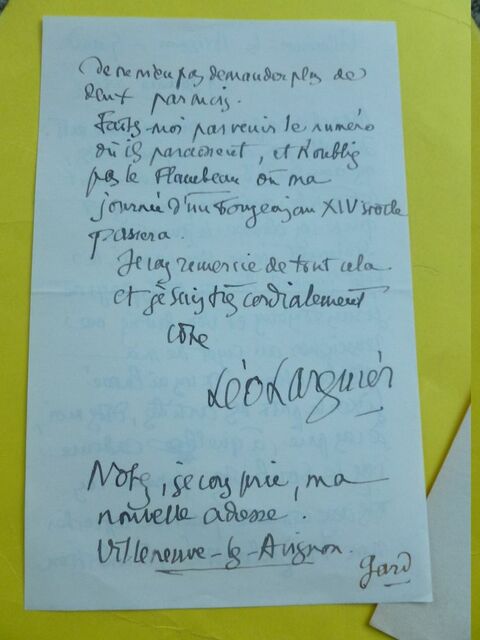 de ne pas demander plus de
deux par mois.
Faites-moi parvenir le numéro
où ils paraissent, et n'oubliez
pas le Flambeau où ma
journée d'un bourgeois au XIV siècle
passera.
Je vous remercie de tout cela
et je suis très cordialement
vôtre
Léo Larguier
Notez, je vous prie, ma
nouvelle adresse.
Villeneuve-lez-Avignon.
Gard